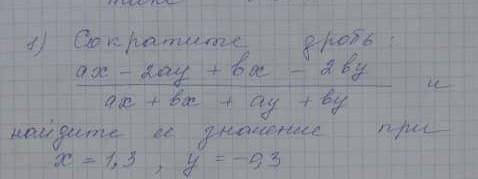 1) Сократите дробь:
ax - 2ay + bx - 2by
ax + bx + ay + by и
найдите ее значение при
x = 1,3 , y = -0,3